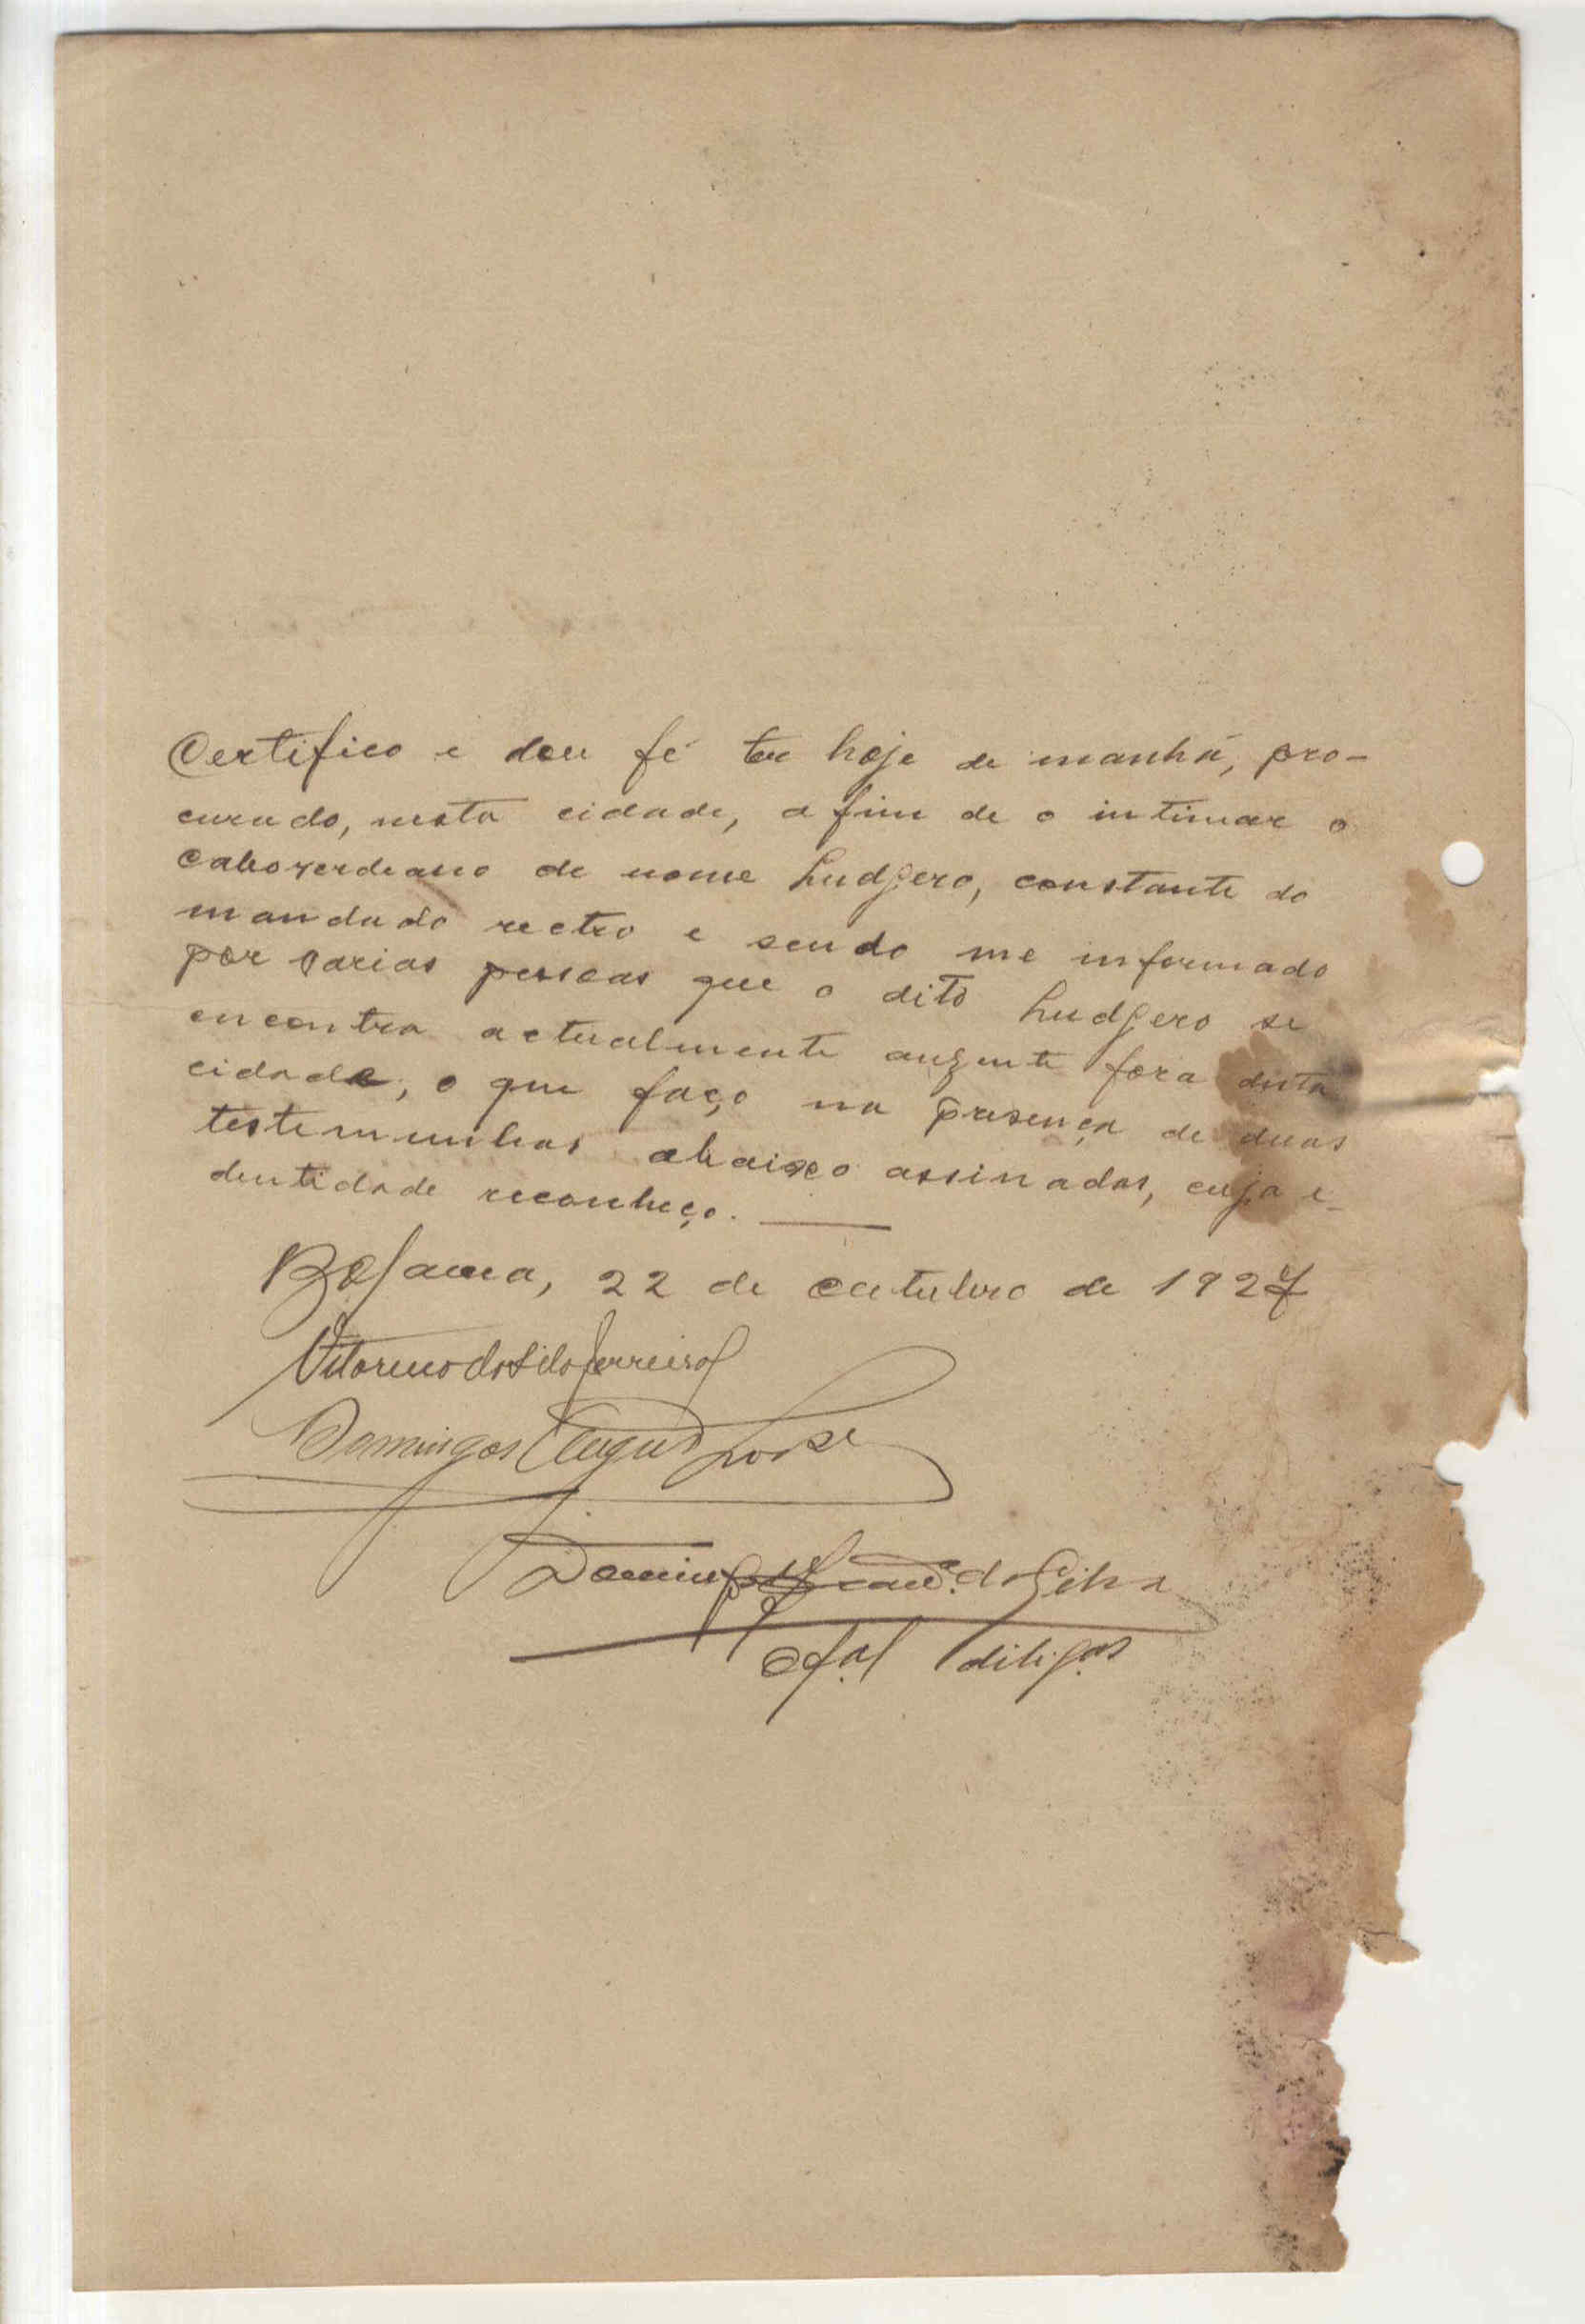 Certifico e dou fé ter hoje de manhã, pro-
curado, nesta cidade, a fim de o intimar o
caboverdeano de nome Ludgero, constante do
mandado rectro e sendo me informado
por varias pessoas que o dito Ludgero se
encontra actualmente auzente fora desta
cidade, o que faço na presença de duas
testemunhas abaixo assinadas, cuja i-
dentidade reconheço.
Bolama, 22 de outubro de 1927
Vitorino da Silva Ferreira
Domingos August
Domingos da Silva
Ofal diligas